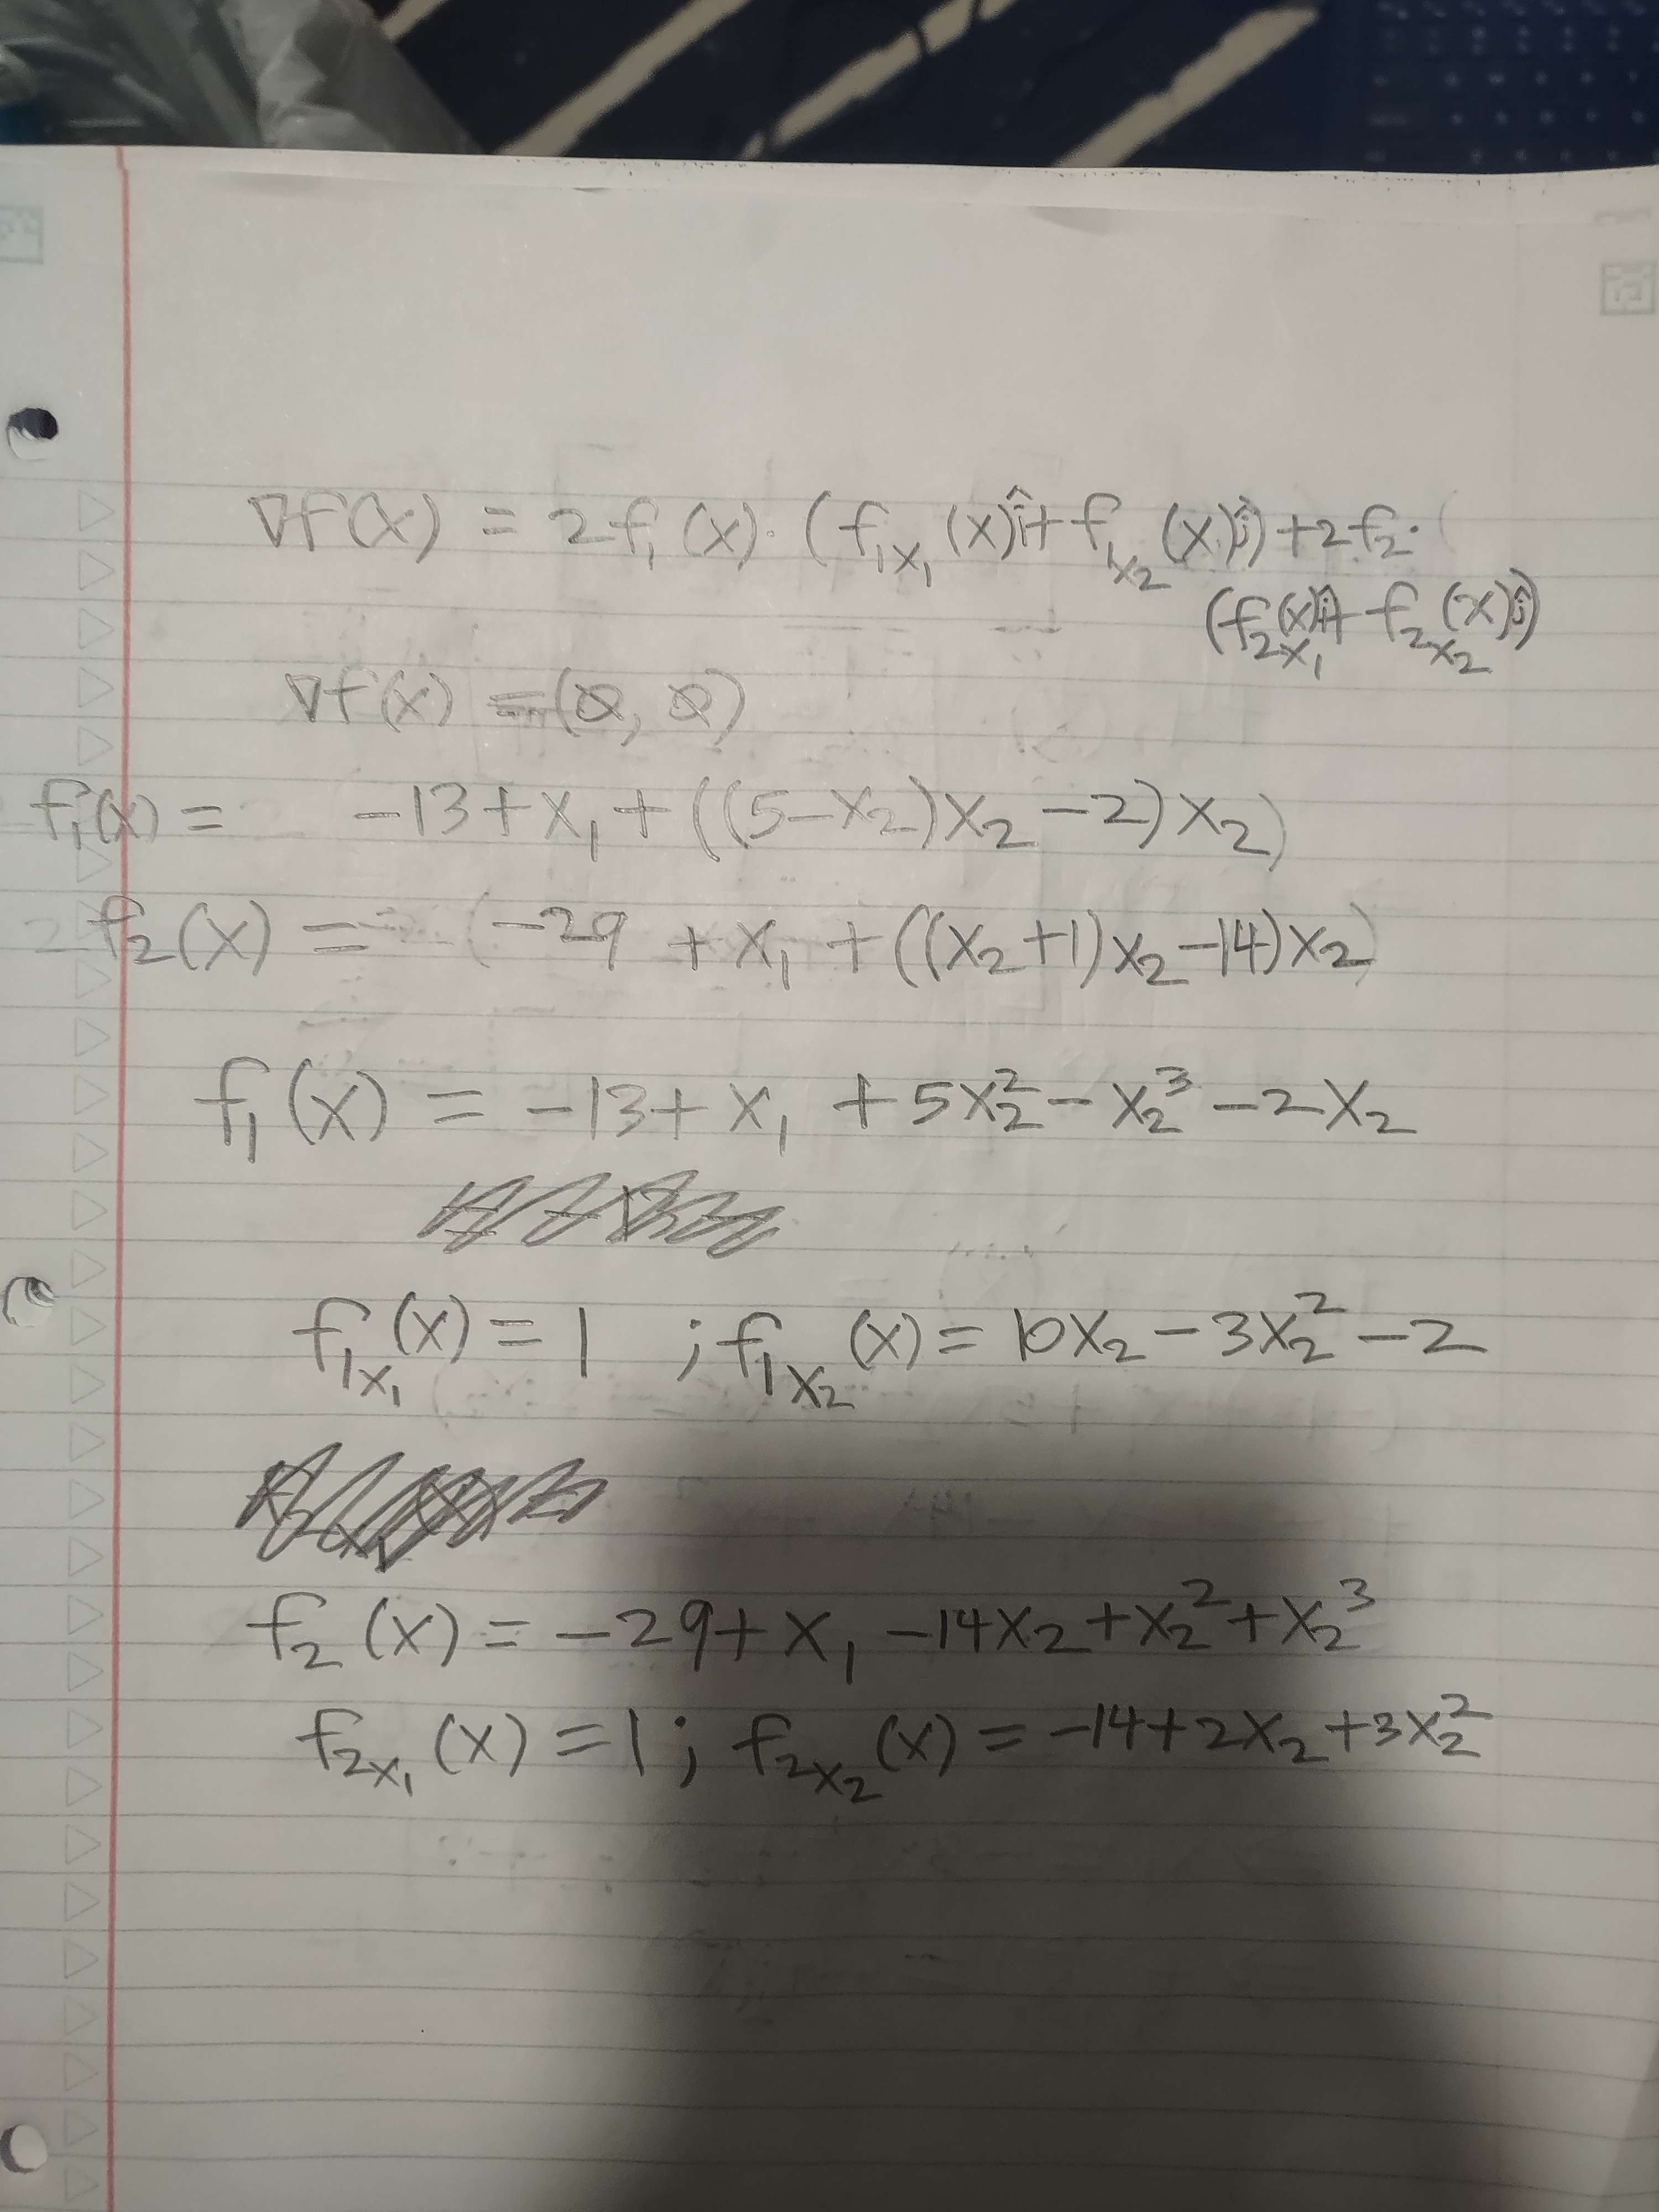 ∇f(x) = 2f₁(x)·(f₁ₓ₁(x)î + f₁ₓ₂(x)ĵ) + 2f₂·
(f₂ₓ₁(x)î + f₂ₓ₂(x)ĵ)
∇f(x) = (0, 0)
f₁(x) = -13 + x₁ + ((5-x₂)x₂ - 2)x₂)
f₂(x) = (-29 + x₁ + ((x₂+1)x₂-14)x₂)
f₁(x) = -13 + x₁ + 5x₂² - x₂³ - 2x₂
f₁ₓ₁(x) = 1 ; f₁ₓ₂(x) = 10x₂ - 3x₂² - 2
f₂(x) = -29 + x₁ - 14x₂ + x₂² + x₂³
f₂ₓ₁(x) = 1 ; f₂ₓ₂(x) = -14 + 2x₂ + 3x₂²